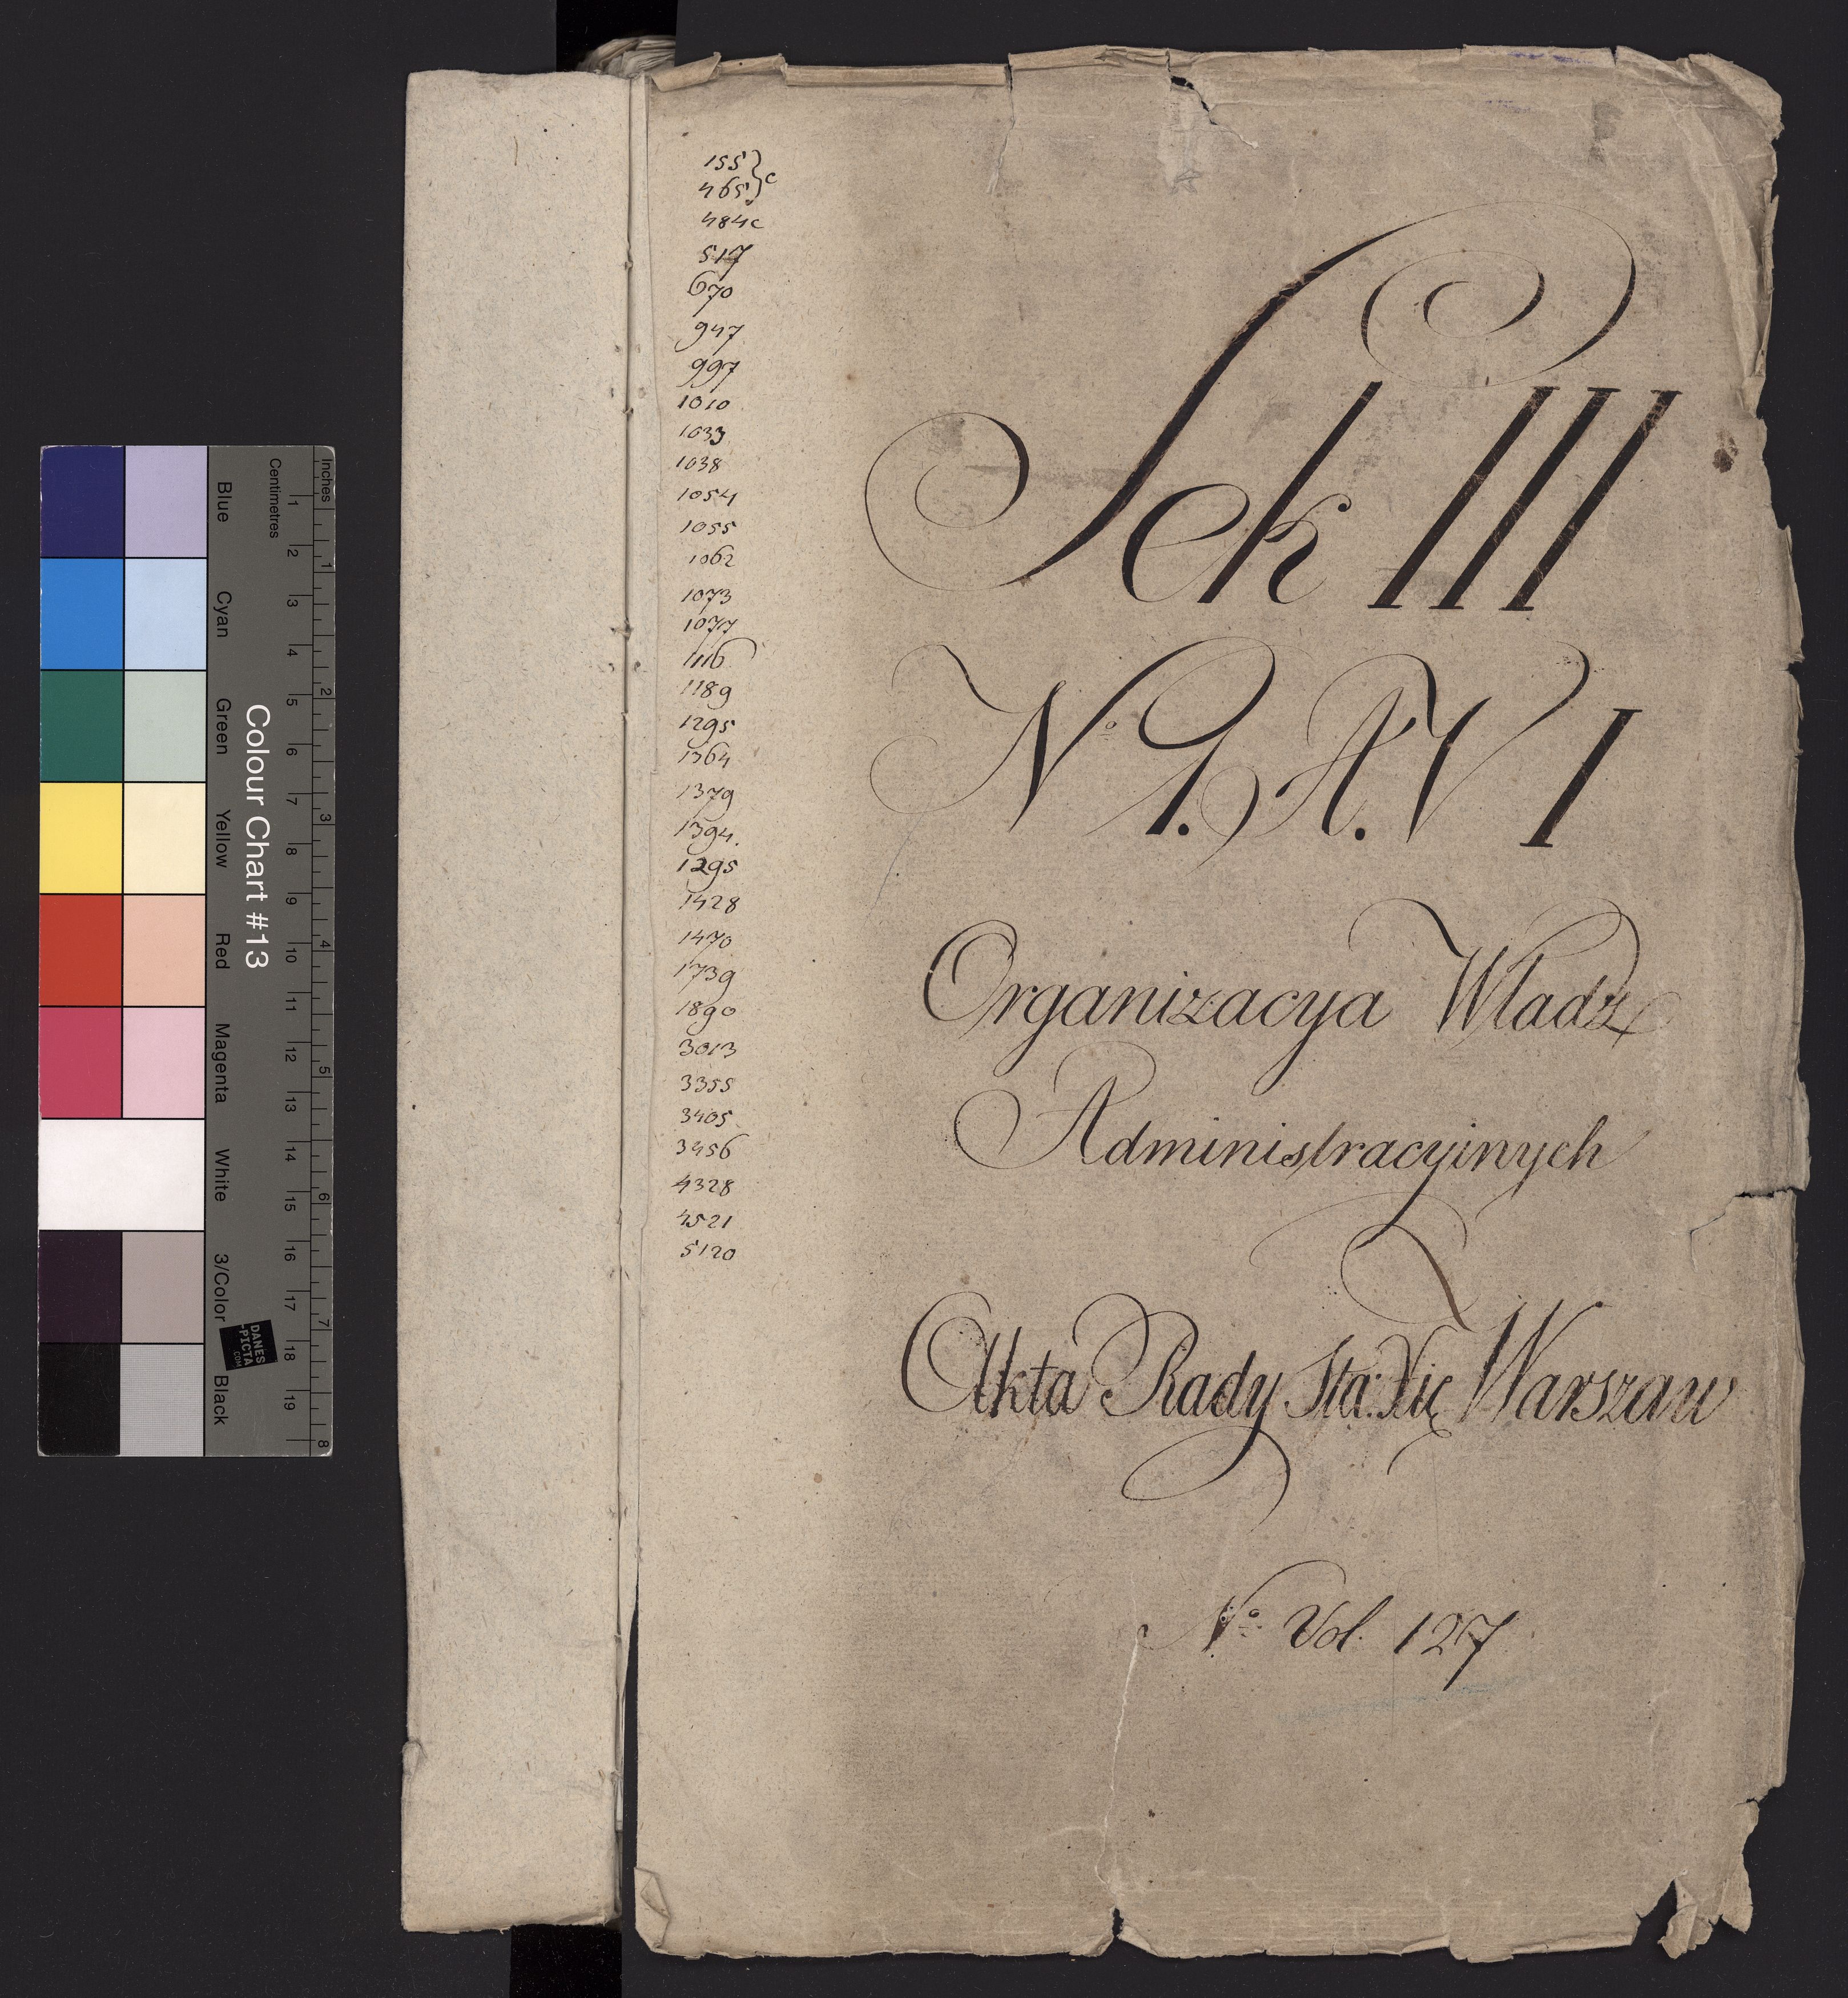 155
465 } c
484c
517
670
947
997
1010
1033
1038
1054
1055
1062
1073
1077
1116
1189
1295
1364
1379
1394.
1295
1428
1470
1739
1890
3013
3355
3405
3456
4328
4521
5120
Sek III
No 1. A. V I
Organizacya Władz
Administracyinych
Akta Rady Sta: Xię Warszaw
No Vol. 127
Colour Chart #13
Inches
Centimetres
1 2 3 4 5 6 7 8 9 10 11 12 13 14 15 16 17 18 19
1 2 3 4 5 6 7 8
Blue Cyan Green Yellow Red Magenta White 3/Color Black
DANES
-PICTA
.COM